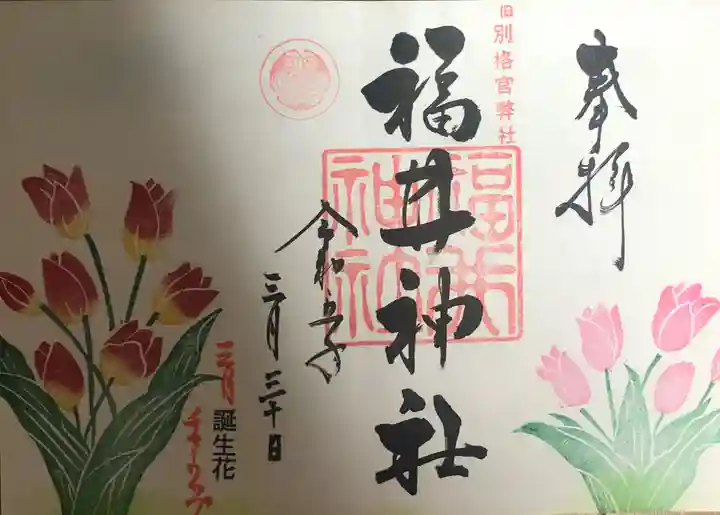 奉拝
旧別格官幣社
福井神社
福井神社
令和五年
三月三十日
三月
誕生花
チューリップ